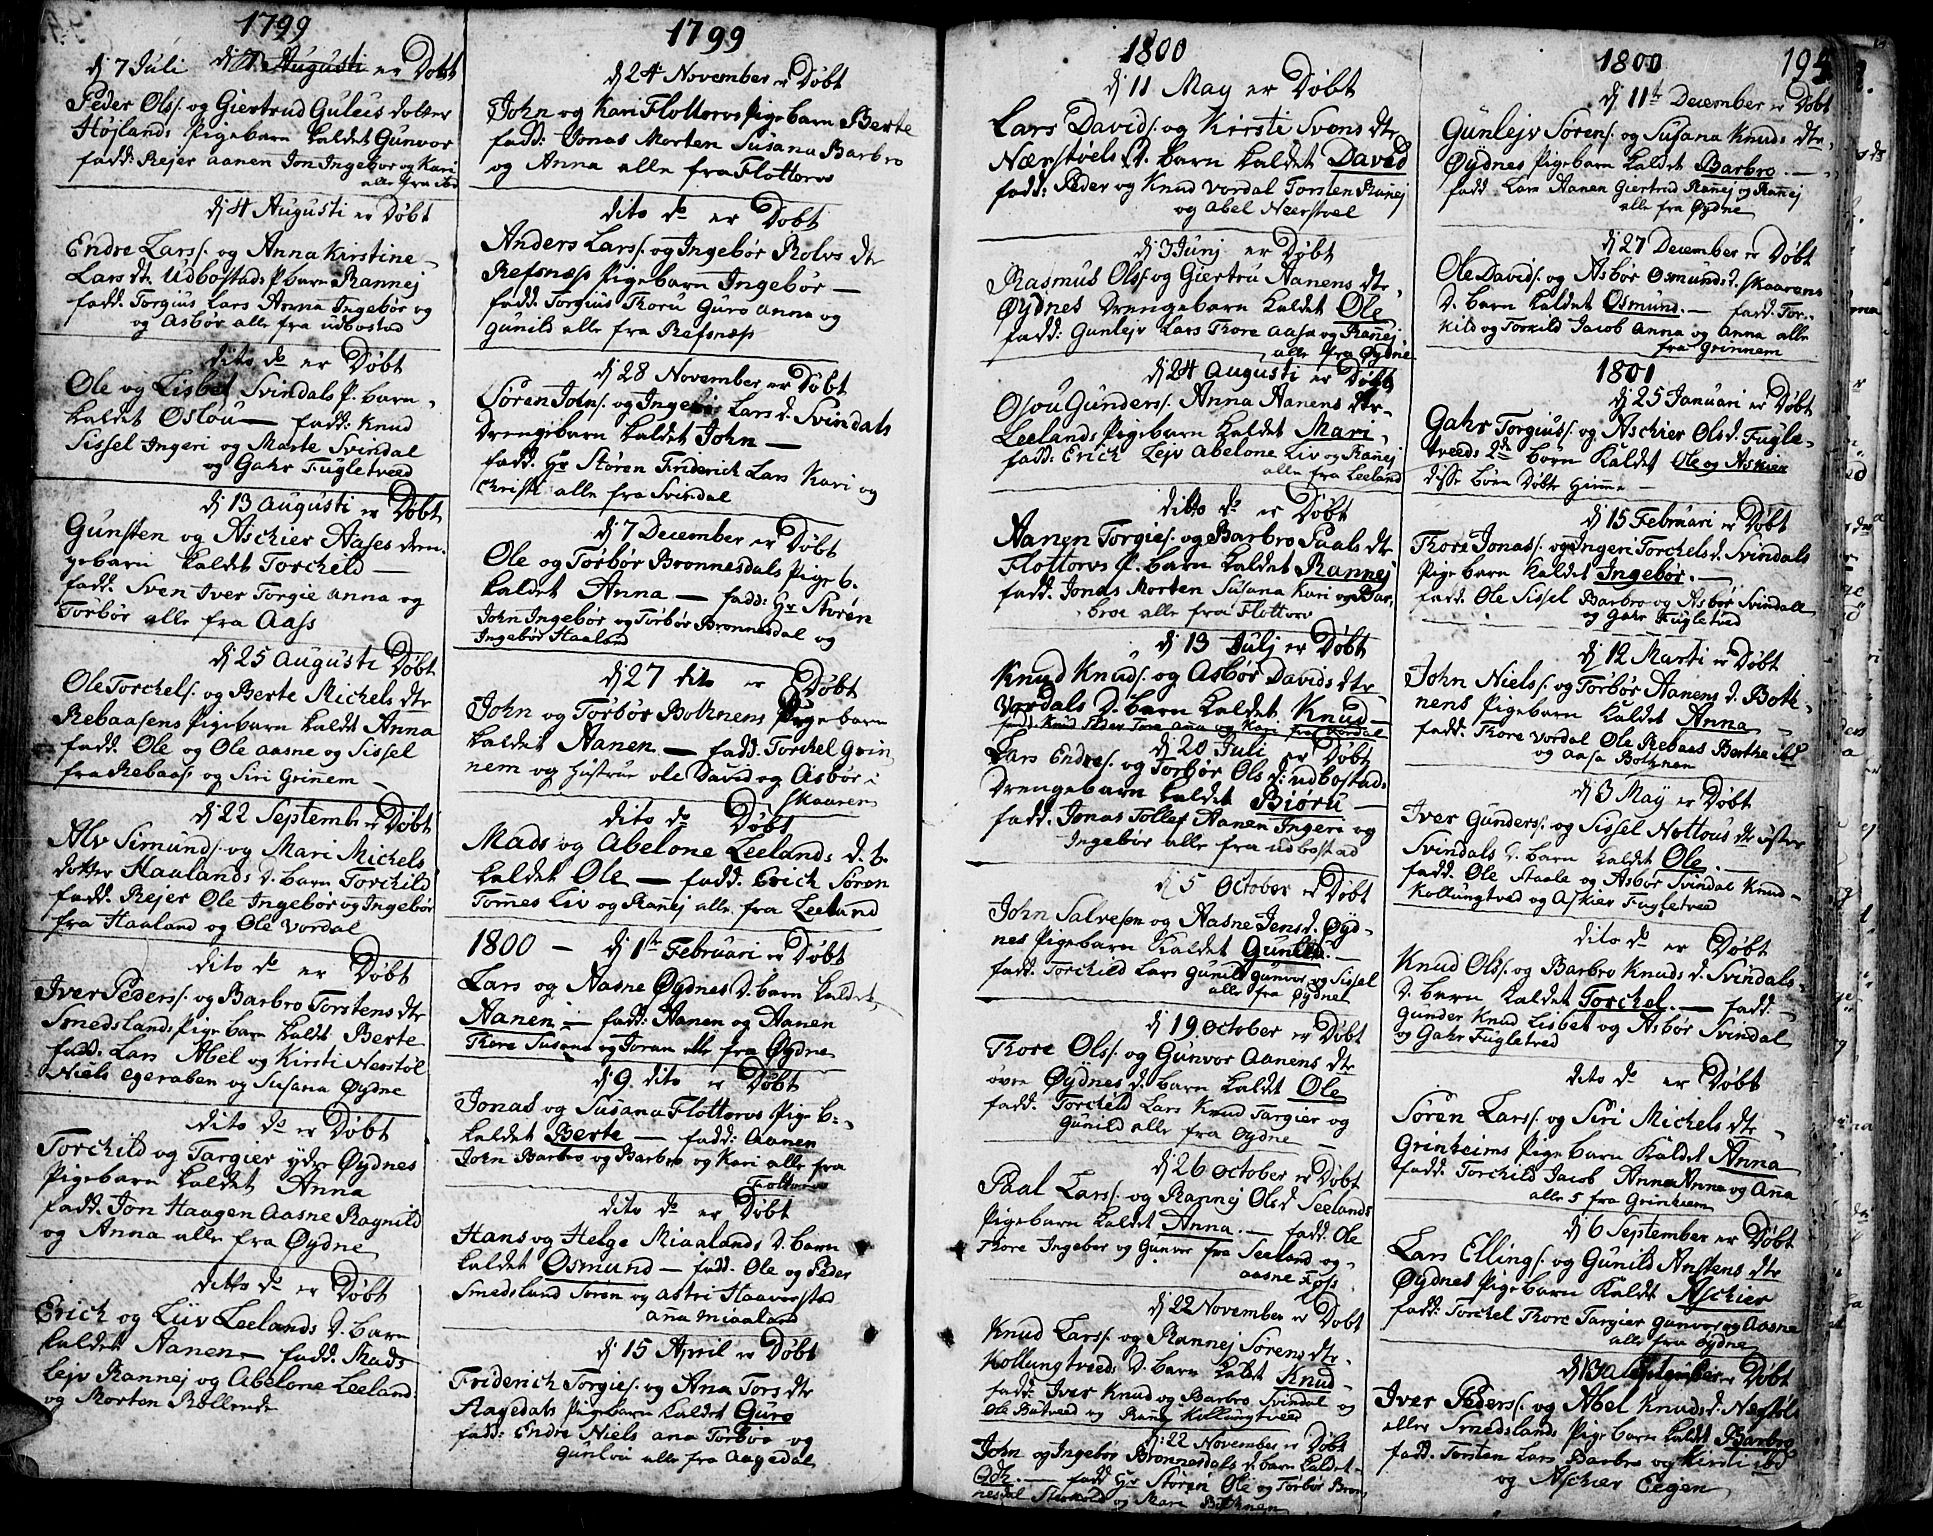 1799
dj 7 Juli dj 7. Augusti er Døbt
Peder Ols/: og Giertrud Guleus dotter
Højlands Pigebarn kaldet Gunvor
fadd: Rejer Aanen Jon Ingebor og Kari
alle fra ibd
dj 4 Augusti er Døbt
Endre Lars/: og Anna Kirstine
Lars dtr Udbostads P. barn Rannej
fadd. Torgius Lars Anna Ingebør og
og Asbør alle fra udbostad
dito do er Døbt
Ole og Lisbet Svindals P. barn
kaldet Oslou — fadd: Knud
Sissel Ingeri og Marte Svindal
og Gahr Fugletveed
dj 13 Augusti er Døbt
Gunsten og Aschier Aases dren-
gebarn kaldet Torcheld —
fadd. Sven Iver Torgie Anna og
Torbør alle fra Aass
dj 25 Augusti Døbt
Ole Torchels/: og Berte Michels dtr
Rebaasens Pigebarn kaldt Anna
fadd. Ole og Ole Aasne og Sissel
fra Rebaass og Siri Grinem —
dj 22 Septembr er Døbt
Alv Simunds/: og Mari Michels
dotter Haalands D. barn Torchild
fadd. Rejer Ole Ingebør og Ingebør
fra Haaland og Ole Vordal
dito do er Døbt
Iver Peders/: og Barbro Torstens dtr
Smedslands Pige barn kaldt Berte
fadd. Lars Abel og Kirsti Nerstøl
Niels Egeraben og Susana Øydne
dito do er Døbt
Torchild og Targier yder Øydnes
Pigebarn kaldet Anna
fadd. Jon Haagen Aasne Ragnild
og Anna alle fra Øydne
ditto do er Døbt
Erich og Liiv Leelands D. barn
kaldet Aanen — fadd. Mads
Lejv Rannej og Abelone Leeland
og Morten Røllende
1799
dj 24 November er Døbt
John og Kari Flottorvs Pigebarn Berte
fadd: Jonas Morten Susana Barbro
og Anna alle fra Flottorv
dito do er Døbt
Anders Lars/: og Ingebør Rolvs dtr
Refsnæss Pigebarn Ingebør —
fadd. Torgius Thoru Guro Anna og
Gunild alle fra Refsnæss
dj 28 November er Døbt
Søren Johns/: og Ingebør Lars d. Svindals
Drengebarn kaldet John —
fadd. Hr Støren Friderich Lars Kari og
Christi alle fra Svindal
dj 7 December er Døbt
Ole og Torbør Bronnesdals Pige b.
kaldet Anna — fadd: Hr Støren
John Ingebør og Torbør Bronnesdal og
Ingebør Haaland
dj 27 dito er Døbt
John og Torbør Bothnens Pigebarn
kaldet Aanen — fadd. Torchel Grin-
nem og Hustrue Ole David og Asbør
Skaaren
dito do Døbt
Mads og Abelone Leelands d. b.
kaldet Ole — fadd. Erich Søren
Tomes Liv og Rannej alle fra Leeland
1800 — dj 1ste Februari er Døbt
Lars og Aasne Øydnes D. barn kaldet
Aanen — fadd: Aanen og Aanen
Thore Susana og Joran alle fra Øydne
dj 9. dito er Døbt
Jonas og Susana Flottorvs Pige b.
kaldet Berte — fadd: Aanen
John Barbro og Barbro og Kari alle fra
Flottorv
dito do er Døbt
Hans og Helge Miaalands D. barn
kaldet Osmund — fadd. Ole og Peder
Smedsland Søren og Astri Haaverstad
Ana Miaaland
dj 15 April er Døbt
Friderich Torgies/: og Ana Tors dtr
Aagedals Pigebarn kaldet Guro
fadd: Endre Niels Ana Torbør og
Gunlou alle fra Aagedal
1800
dj 11 May er Døbt
Lars Davids/: og Kirsti Svens dtr
Nærstøels D. barn kaldet David
fadd: Peder og Knud Vordal Torsten Rannej
og Abel Neerstøel
dj 3 Junj er Døbt
Rasmus Ols/: og Giertru Aanens dtr
Øydnes Drengebarn kaldet Ole
fadd: Gunlejv Lars Thore Aasa og Rannej
alle fra Øydne
dj 24 Augusti er Døbt
Osou Gunders/: Anna Aanens dtr
Leelands Pigebarn kaldet Mari
fadd: Erich Lejv Abelone Liv og Rannej
alle fra Leeland
ditto do er Døbt
Aanen Torgies/: og Barbro Paals dtr
Flottorvs P. barn kaldet Rannej
fadd. Jonas Morten Susana Kari og Bar-
broe alle fra Flottorv
dj 13 Julj er Døbt
Knud Knuds/: og Asbør Davids dtr
Vordals D. barn kaldet Knud —
fadd: Knud Peder Tore Ana og Kari fra Vordal
dj 20 Juli er Døbt
Lars Endres/: og Torbør Ols d: udbostads
Drengebarn kaldet Biøru —
fadd. Jonas Tollef Aanen Ingeri og
Ingebør alle fra udbostad
dj 5 October er Døbt
John Salvesøn og Aasne Jens d. Øyd-
nes Pigebarn kaldet Gunild —
fadd. Torchild Lars Gunild Gunvor og Sissel
alle fra Øydne
dj 19 October er Døbt
Thore Ols/: og Gunvor Aanens dtr
øvre Øydnes d. barn kaldet Ole
fadd. Torchild Lars Knud Targier og
Gunild alle fra Øydne —
dj 26 October er Døbt
Paal Lars/: og Rannej Ols d Seelands
Pigebarn kaldet Anna — fadd. Ole
Thore Ingeber og Gunvor fra Seeland og
Aasne Foss
dj 22 November er Døbt
Knud Lars/: og Rannej Sørens dtr
Kollungtveeds D. barn kaldet Knud
fadd. Iver Knud og Barbro Svindal og
Ole Butveed og Rannej Kollungtveed
dj: 22 November er Døbt
John og Ingebør Bronnesdals d. barn kaldet
fadd Hr Støren Ole og Torbør Bron-
nesdal og Mari Bothnen
1800
194
dj 11te December er Døbt
Gunlejv Sørens/: og Susana Knuds dtr
Øydnes Pigebarn kaldet Barbro. —
fadd. Lars Aanen Giertrud Rannej og Rannej
alle fra Øydne
dj 27 December er Døbt
Ole Davids/: og Asbør Osmunds d. Skaarens
D. barn kaldet Osmund. — fadd. Tor-
kild og Torkild Jacob Anna og Anna alle
fra Grinnem
1801
dj 25 Januari er Døbt
Gahr Torgius/: og Aschier Ols d. Fugle-
tveeds 2de børn kaldet Ole og Askier
disse børn Døbte Hiemme —
dj 15 Februari er Døbt
Thore Jonas/: og Ingeri Torchels d. Svindals
Pige barn kaldet Ingebør. —
fadd. Ole Sissel Barbro og Asbør Svindal
og Gahr Fugletved
dj 12 Marti er Døbt
John Niels/: og Torbør Aanens d. Both-
nens Pigebarn kaldet Anna
fadd. Thore Vordal Ole Rebaas Berthe ibd
og Aasa Bothnen
dj 3 Maÿ er Døbt
Iver Gunders/: og Sissel Nottous dtr øster
Svindals D. barn kaldet Ole
fadd. Ole Staale og Asbør Svindal Knud
Kollungtved og Askier Fugletveed
dito do er Døbt
Knud Ols/: og Barbro Knuds d. Svindals
D. barn kaldet Torchel. — fadd:
Gunder Knud Lisbet og Asbør Svindal
og Gahr Fugletved
dito do er Døbt
Søren Lars/: og Siri Michels dtr
Grinheims Pige barn kaldet Anna
fadd. Torchild Jacob Anna Anna og Ana
alle 5 fra Grinheim
dj 6 September er Døbt
Lars Ellings/: og Gunild Anstens dtr
Øydnes Pige barn kaldt Aschier
fadd: Torchel Thore Targier Gunvor og Aasne
alle fra Øydne
September er Døbt
Iver Peders/: og Abel Knuds d. Nestøls
eller Smedslands Pige barn kaldt Barbro
fadd. Torsten Lars Barbro og Kirsti ibd
og Aschier Eegen